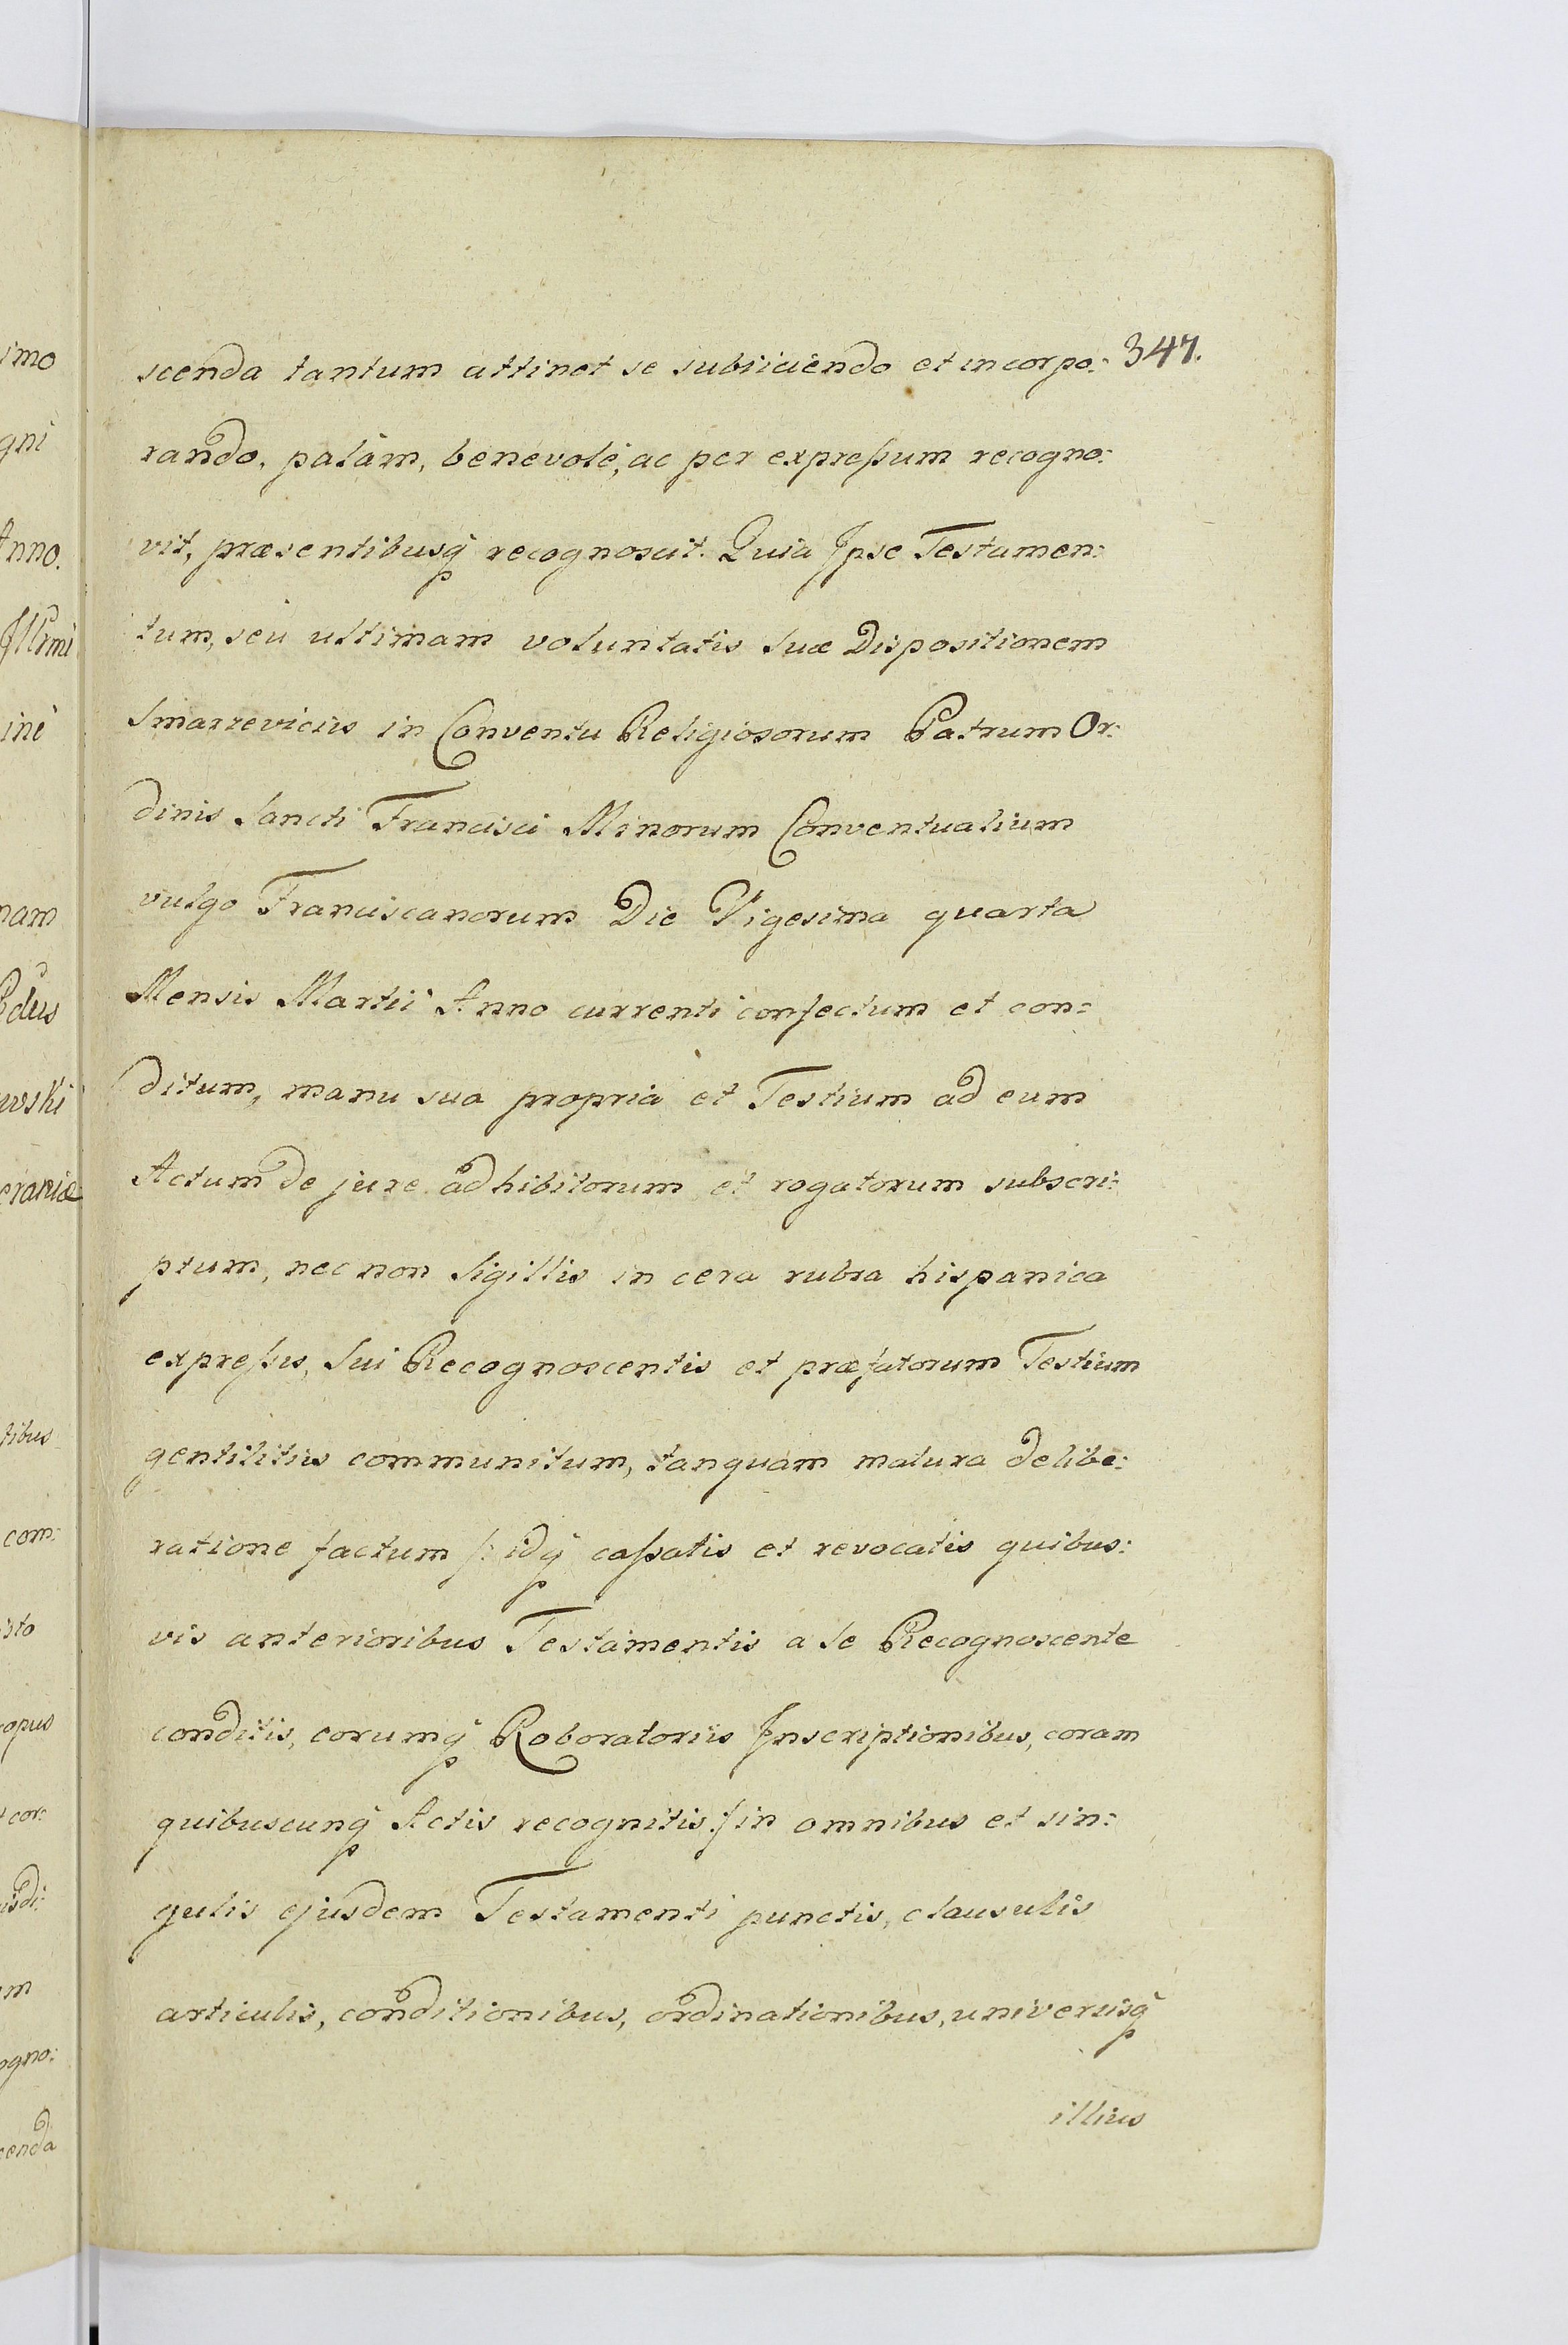 347.
scenda tantum attinet se subiiciendo et incorpo:
rando, palàm, benevolè, ac per expreßum recogno:
vit, præsentibusq́ recognoscit. Quia Ipse Testamen:
tum, seu ultimam voluntatis suæ Dispositionem
Smarzeviciis in Conventu Religiosorum Patrum Or:
dinis Sancti Francisci Minorum Conventualium
vulgo Franciscanorum Die Vigesima quarta
Mensis Martii Anno currenti confectum et con:
ditum, manu sua propria et Testium ad eum
Actum de jure adhibitorum et rogatorum subscri:
ptum, nec non Sigillis in cera rubra hispanica
expreßis, Sui Recognoscentis et præfatorum Testium
gentilitiis communitum, tanquam matura delibe:
ratione factum /: idq́ caßatis et revocatis quibus:
vis anterioribus Testamentis a se Recognoscente
conditis, eorumq́ Roboratoriis Inscriptionibus, coram
quibuscunq́ Actis recognitis :/ in omnibus et sin:
gulis ejusdem Testamenti punctis, clausulis
articulis, conditionibus, ordinationibus, universisq́
illius
imo
gni
Anno.
Illrmi
nam
wski
craniæ
tibus
com:
isto
opus
cor:
ogno:
cenda